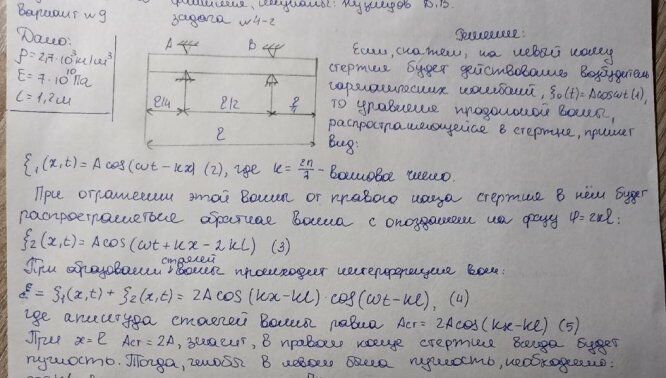 Вариант №9
задача №4-2
Дано:
ρ=2,7·10³кг/м³
E=7·10¹⁰Па
ℓ=1,2м
A
B
ℓ/4
ℓ/2
ℓ/4
ℓ
Решение:
Если, скажем, на левый конец
стержня будет действовать возбудитель
гармонических колебаний, ξ₀(t)=Acosωt(1),
то уравнение продольной волны,
распространяющейся в стержне, примет
вид:
ξ₁(x,t)=Acos(ωt-kx) (2), где k=2π/λ - волновое число.
При отражении этой волны от правого конца стержня в нём будет
распространяться обратная волна с опозданием на фазу φ=2kℓ:
ξ₂(x,t)=Acos(ωt+kx-2kℓ) (3)
При образовании стоячей волны происходит интерференция волн:
ξ=ξ₁(x,t)+ξ₂(x,t)=2Acos(kx-kℓ)·cos(ωt-kℓ), (4)
где амплитуда стоячей волны равна Aст=2Acos(kx-kℓ) (5)
При x=ℓ Aст=2A, значит, в правом конце стержня всегда будет
пучность. Тогда, чтобы в левом была пучность, необходимо: